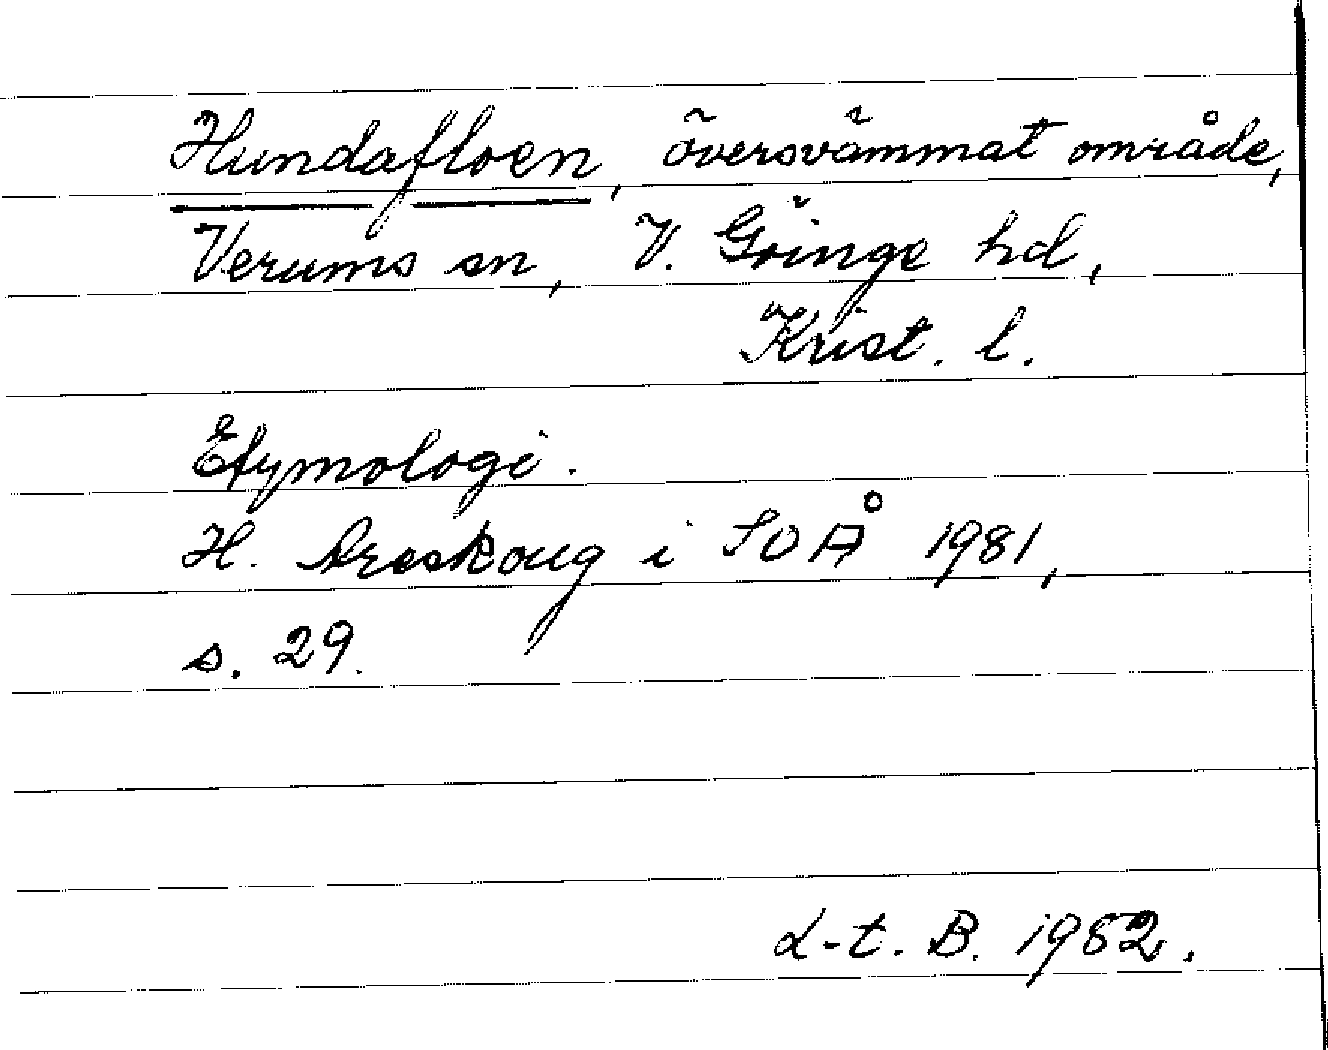 Hundafloen, översvämmat område,
Verums sn, V. Göinge hd,
Krist. l.
Etymologi.
H. Areskoug i SOÅ 1981,
s. 29.
L-t. B. 1982.